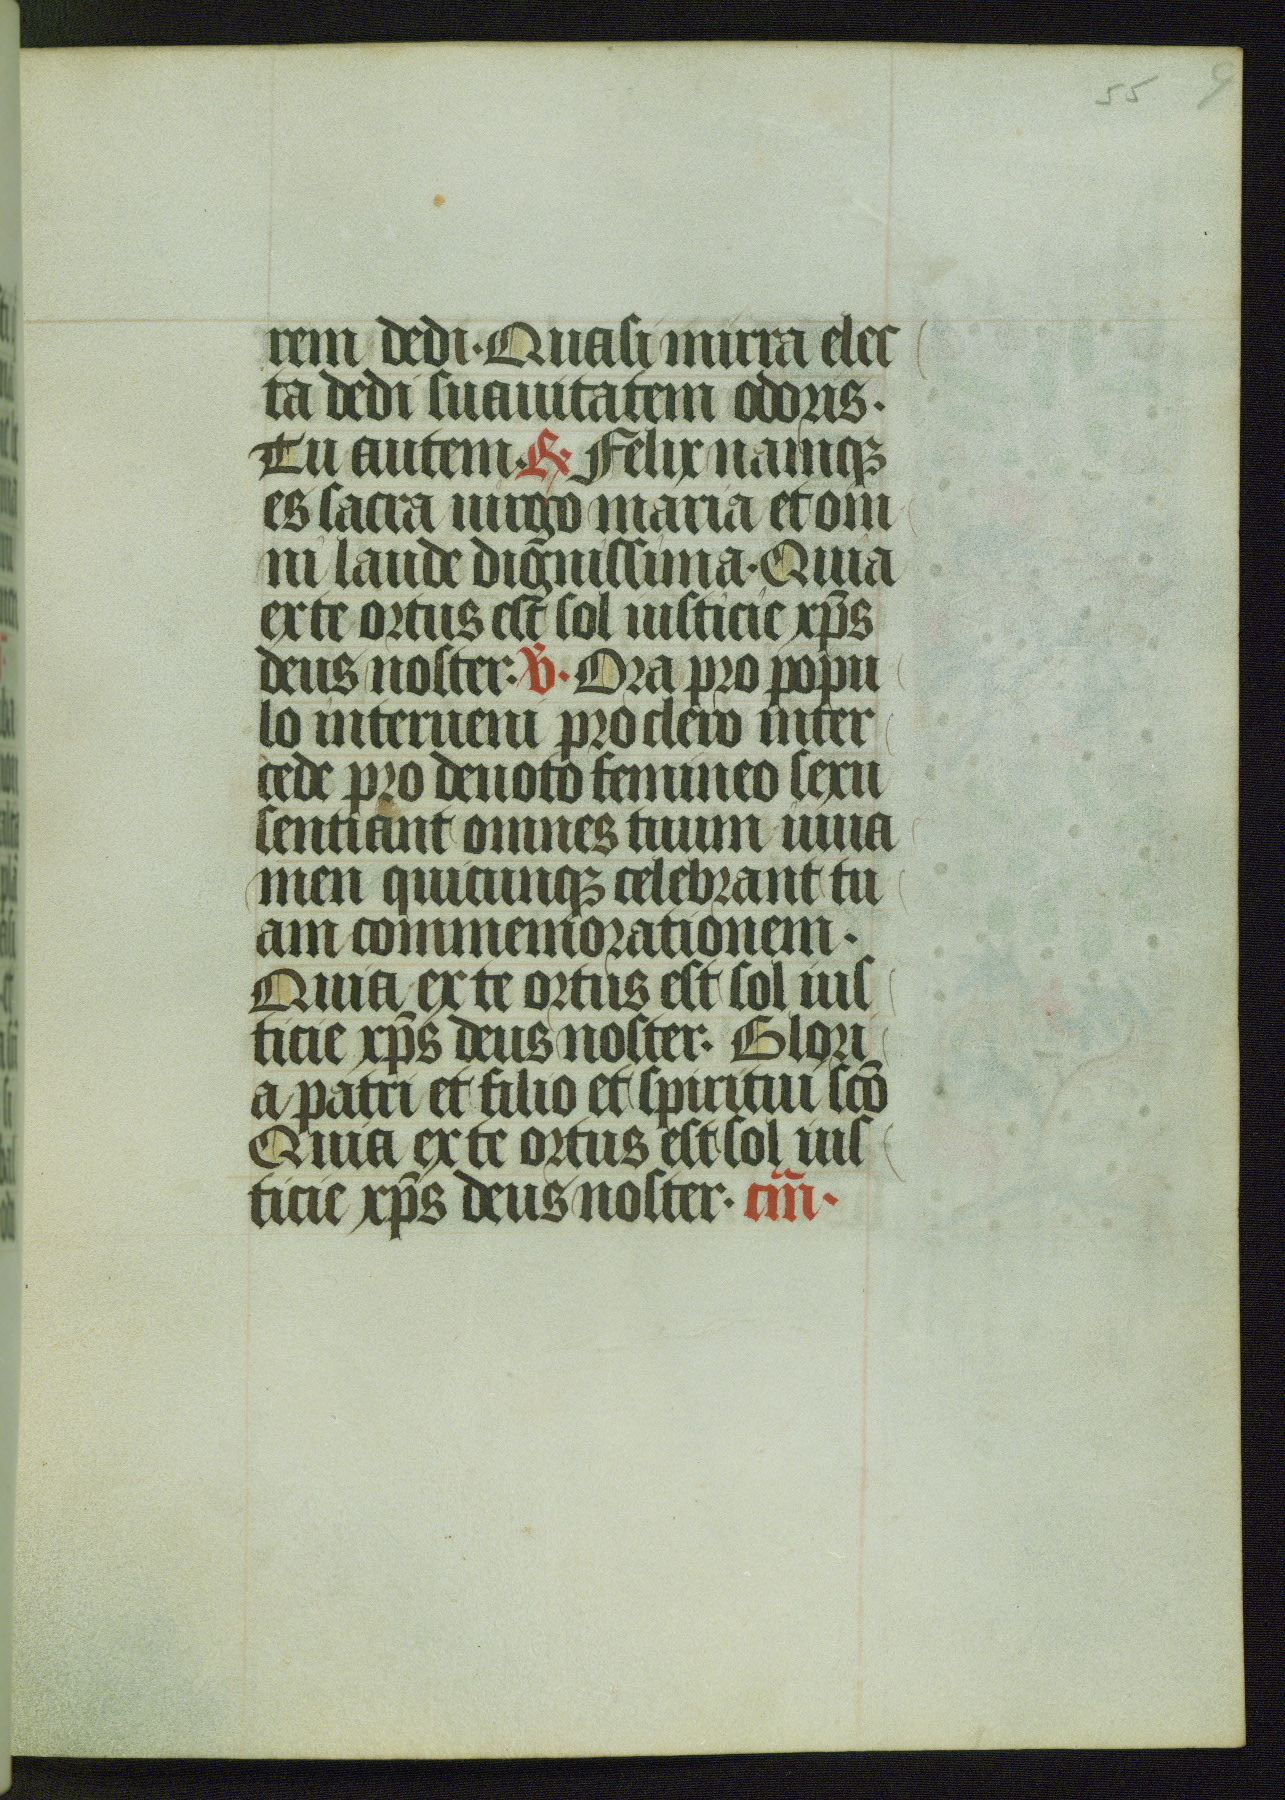 55
rem dedi. Quasi mirra elec
ta dedi suauitatem odoris.
Tu autem. ℟. Felix namqꝫ
es sacra uirgo maria et om
ni laude dignissima. Quia
ex te ortus est sol iusticie xp̄s
deus noster. ℣. Ora pro popu
lo interueni pro clero inter
cede pro deuoto femineo sexu
sentiant omnes tuum iuua
men quicunqꝫ celebrant tu
am commemorationem.
Quia ex te ortus est sol ius
ticie xp̄s deus noster. Glori
a patri et filio et spiritui sc̄o
Quia ex te ortus est sol ius
ticie xp̄s deus noster.